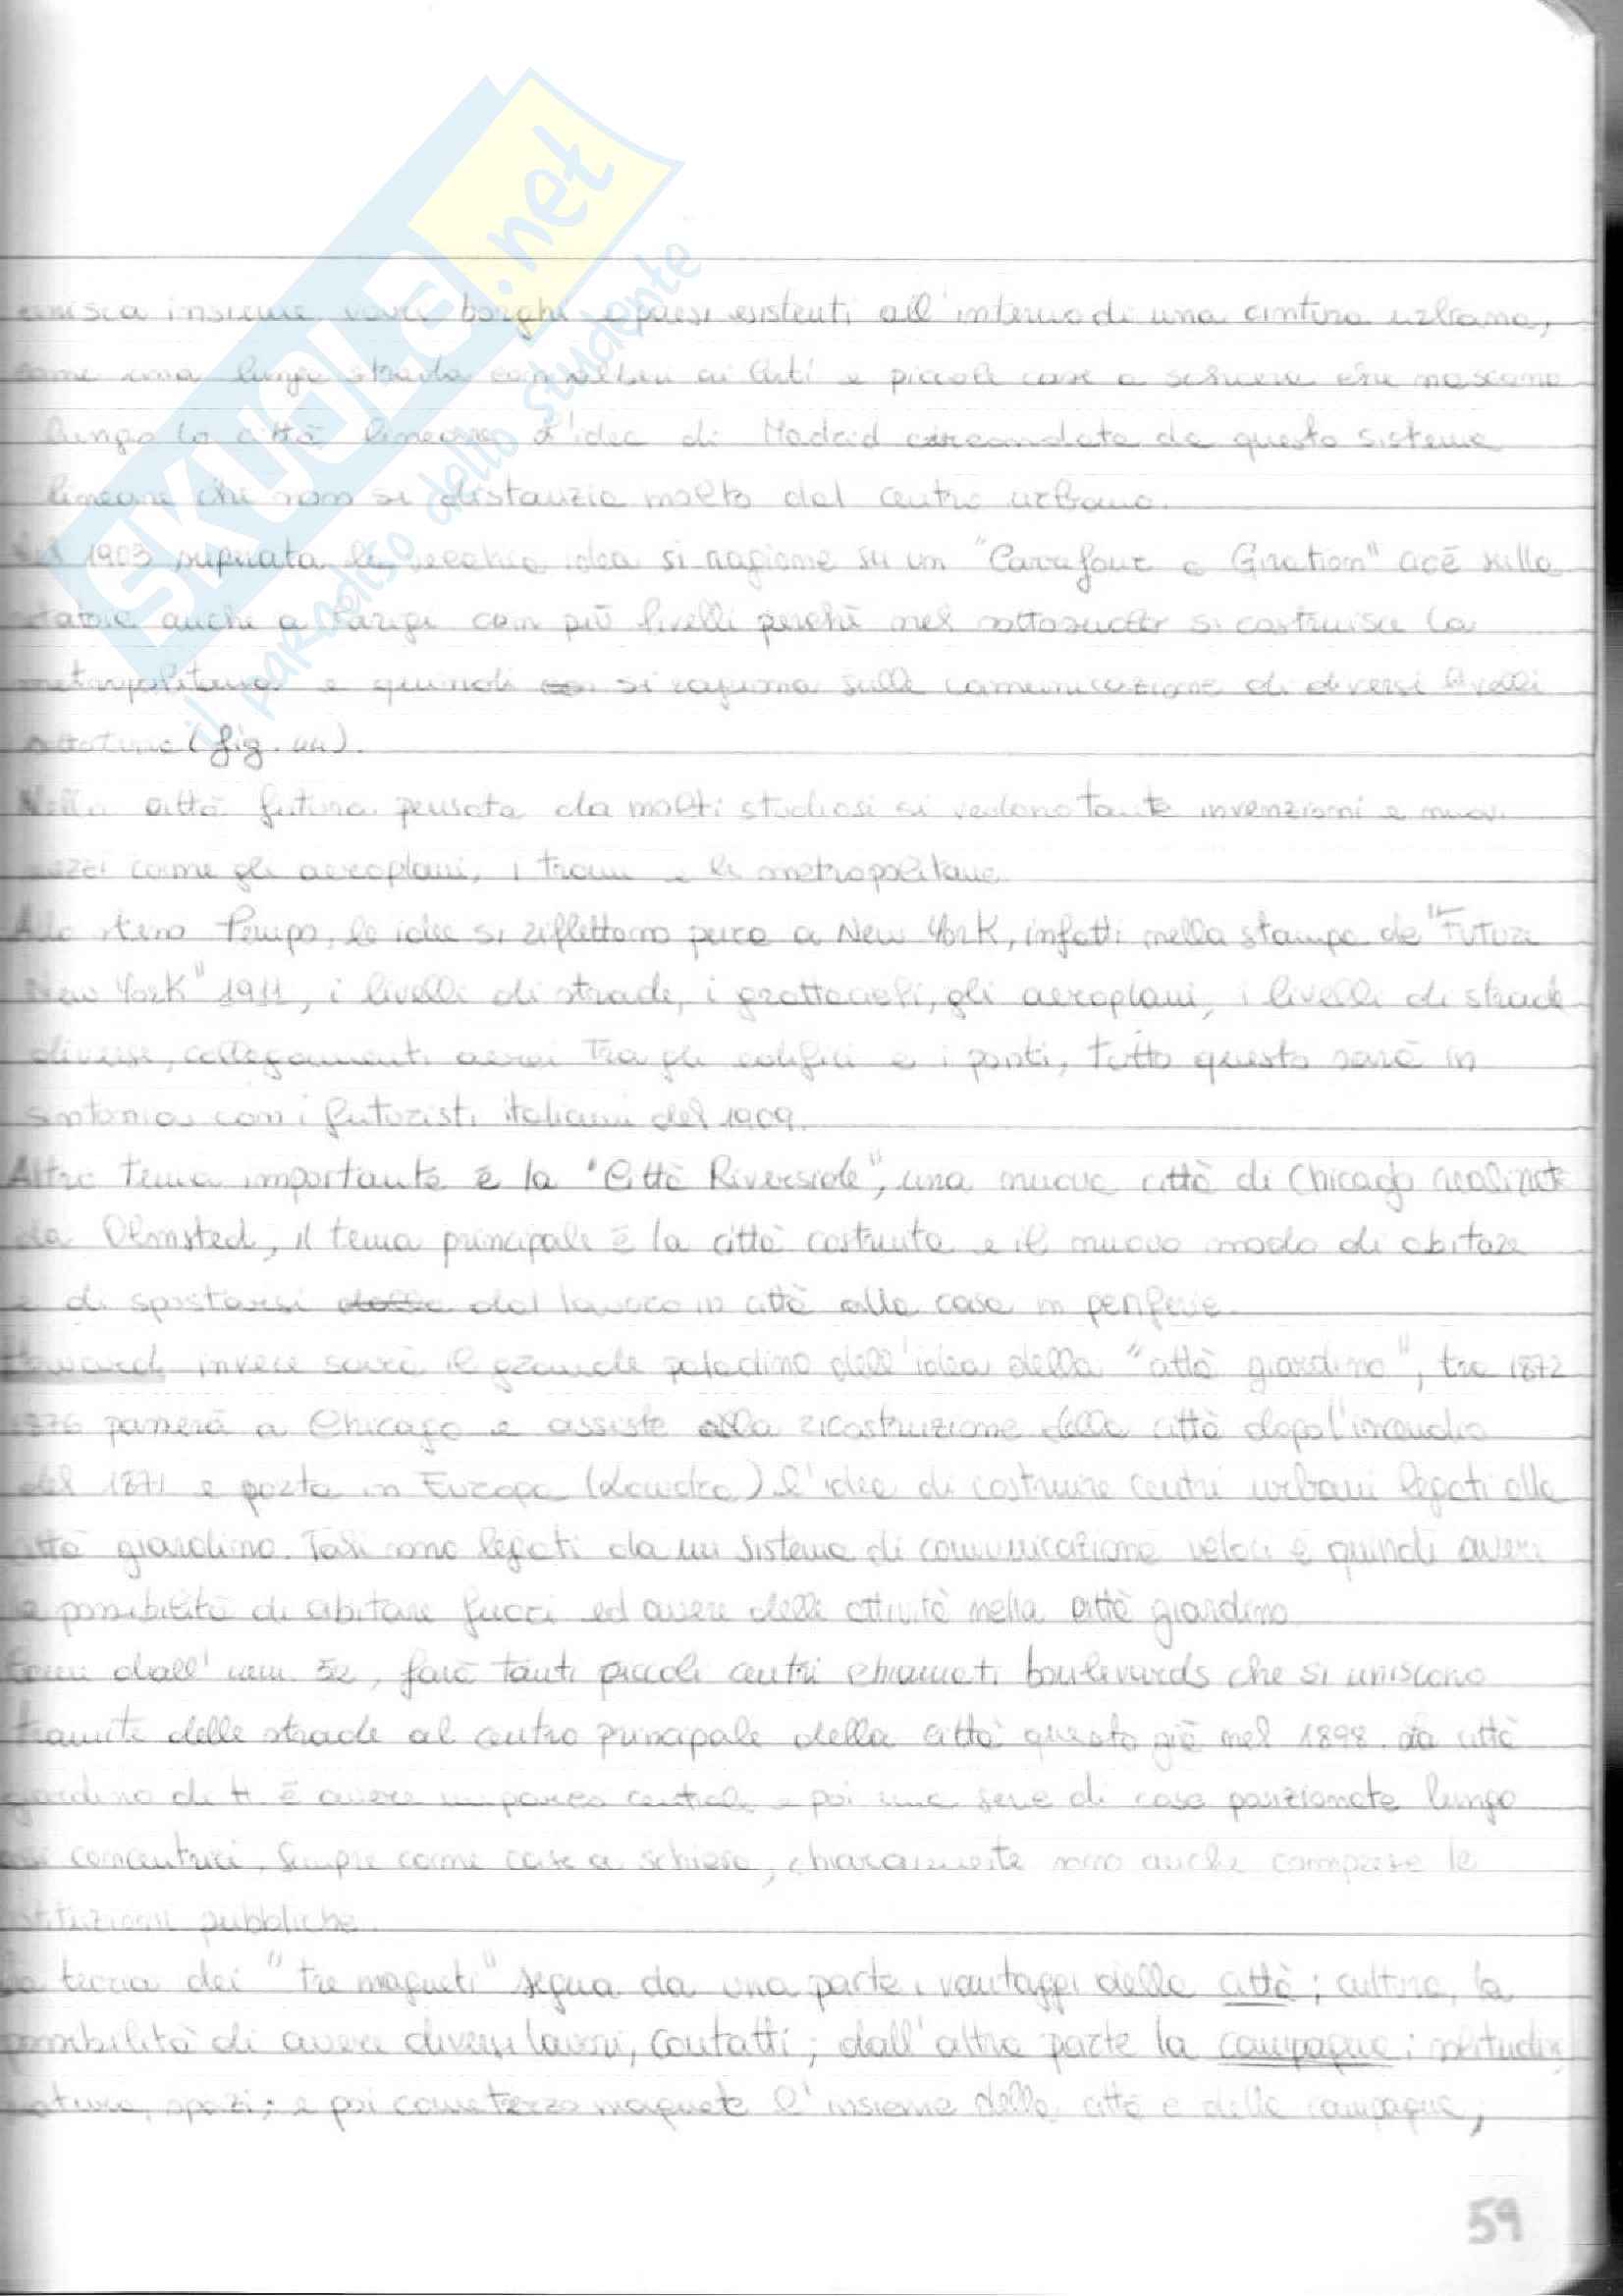 SKUOLA.net
il paradiso dello studente
unisca insieme vari borghi e paesi esistenti all'interno di una cintura urbana,
come una lunga strada con alberi ai lati e piccole case a schiera che nascono
lungo la città lineare. L'idea di Madrid circondata da questo sistema
lineare che non si distanzia molto dal centro urbano.
Nel 1903 superata la vecchia idea si ragiona su un "Carrefour a Giration" cioè sulla
rotatoria anche a Parigi con più livelli perché nel sottosuolo si costruisce la
metropolitana e quindi si ragiona sulla comunicazione di diversi livelli
(fig. 44).
Nella città futura pensata da molti studiosi si vedono tante invenzioni e nuovi
mezzi come gli aeroplani, i tram e la metropolitana.
Allo stesso tempo, le idee si riflettono pure a New York, infatti nella stampa de "Future
New York" 1911, i livelli di strade, i grattacieli, gli aeroplani, i livelli di strade
diverse, collegamenti aerei tra gli edifici e i ponti, tutto questo sarà in
sintonia con i futuristi italiani del 1909.
Altro tema importante è la "Città Riverside", una nuova città di Chicago realizzata
da Olmsted, il tema principale è la città costruita e il nuovo modo di abitare
e di spostarsi dal lavoro in città alla casa in periferia.
Howard invece sarà il grande paladino dell'idea della "città giardino", tra 1872
1876 passerà a Chicago e assiste alla ricostruzione della città dopo l'incendio
del 1871 e porta in Europa (Londra) l'idea di costruire centri urbani legati alla
città giardino. Tali sono legati da un sistema di comunicazione veloce e quindi avere
la possibilità di abitare fuori ed avere delle attività nella città giardino.
dall' 52, farà tanti piccoli centri chiamati boulevards che si uniscono
tramite delle strade al centro principale della città questo già nel 1898. La città
giardino di H. è avere un parco centrale e poi una serie di case posizionate lungo
assi concentrici, sempre come case a schiera, chiaramente sono anche comprese le
istituzioni pubbliche.
La teoria dei "tre magneti" segna da una parte i vantaggi della città; cultura, la
possibilità di avere diversi lavori, contatti; dall'altra parte la campagna; solitudine,
natura, spazi; e poi come terzo magnete l'insieme della città e della campagna;
59